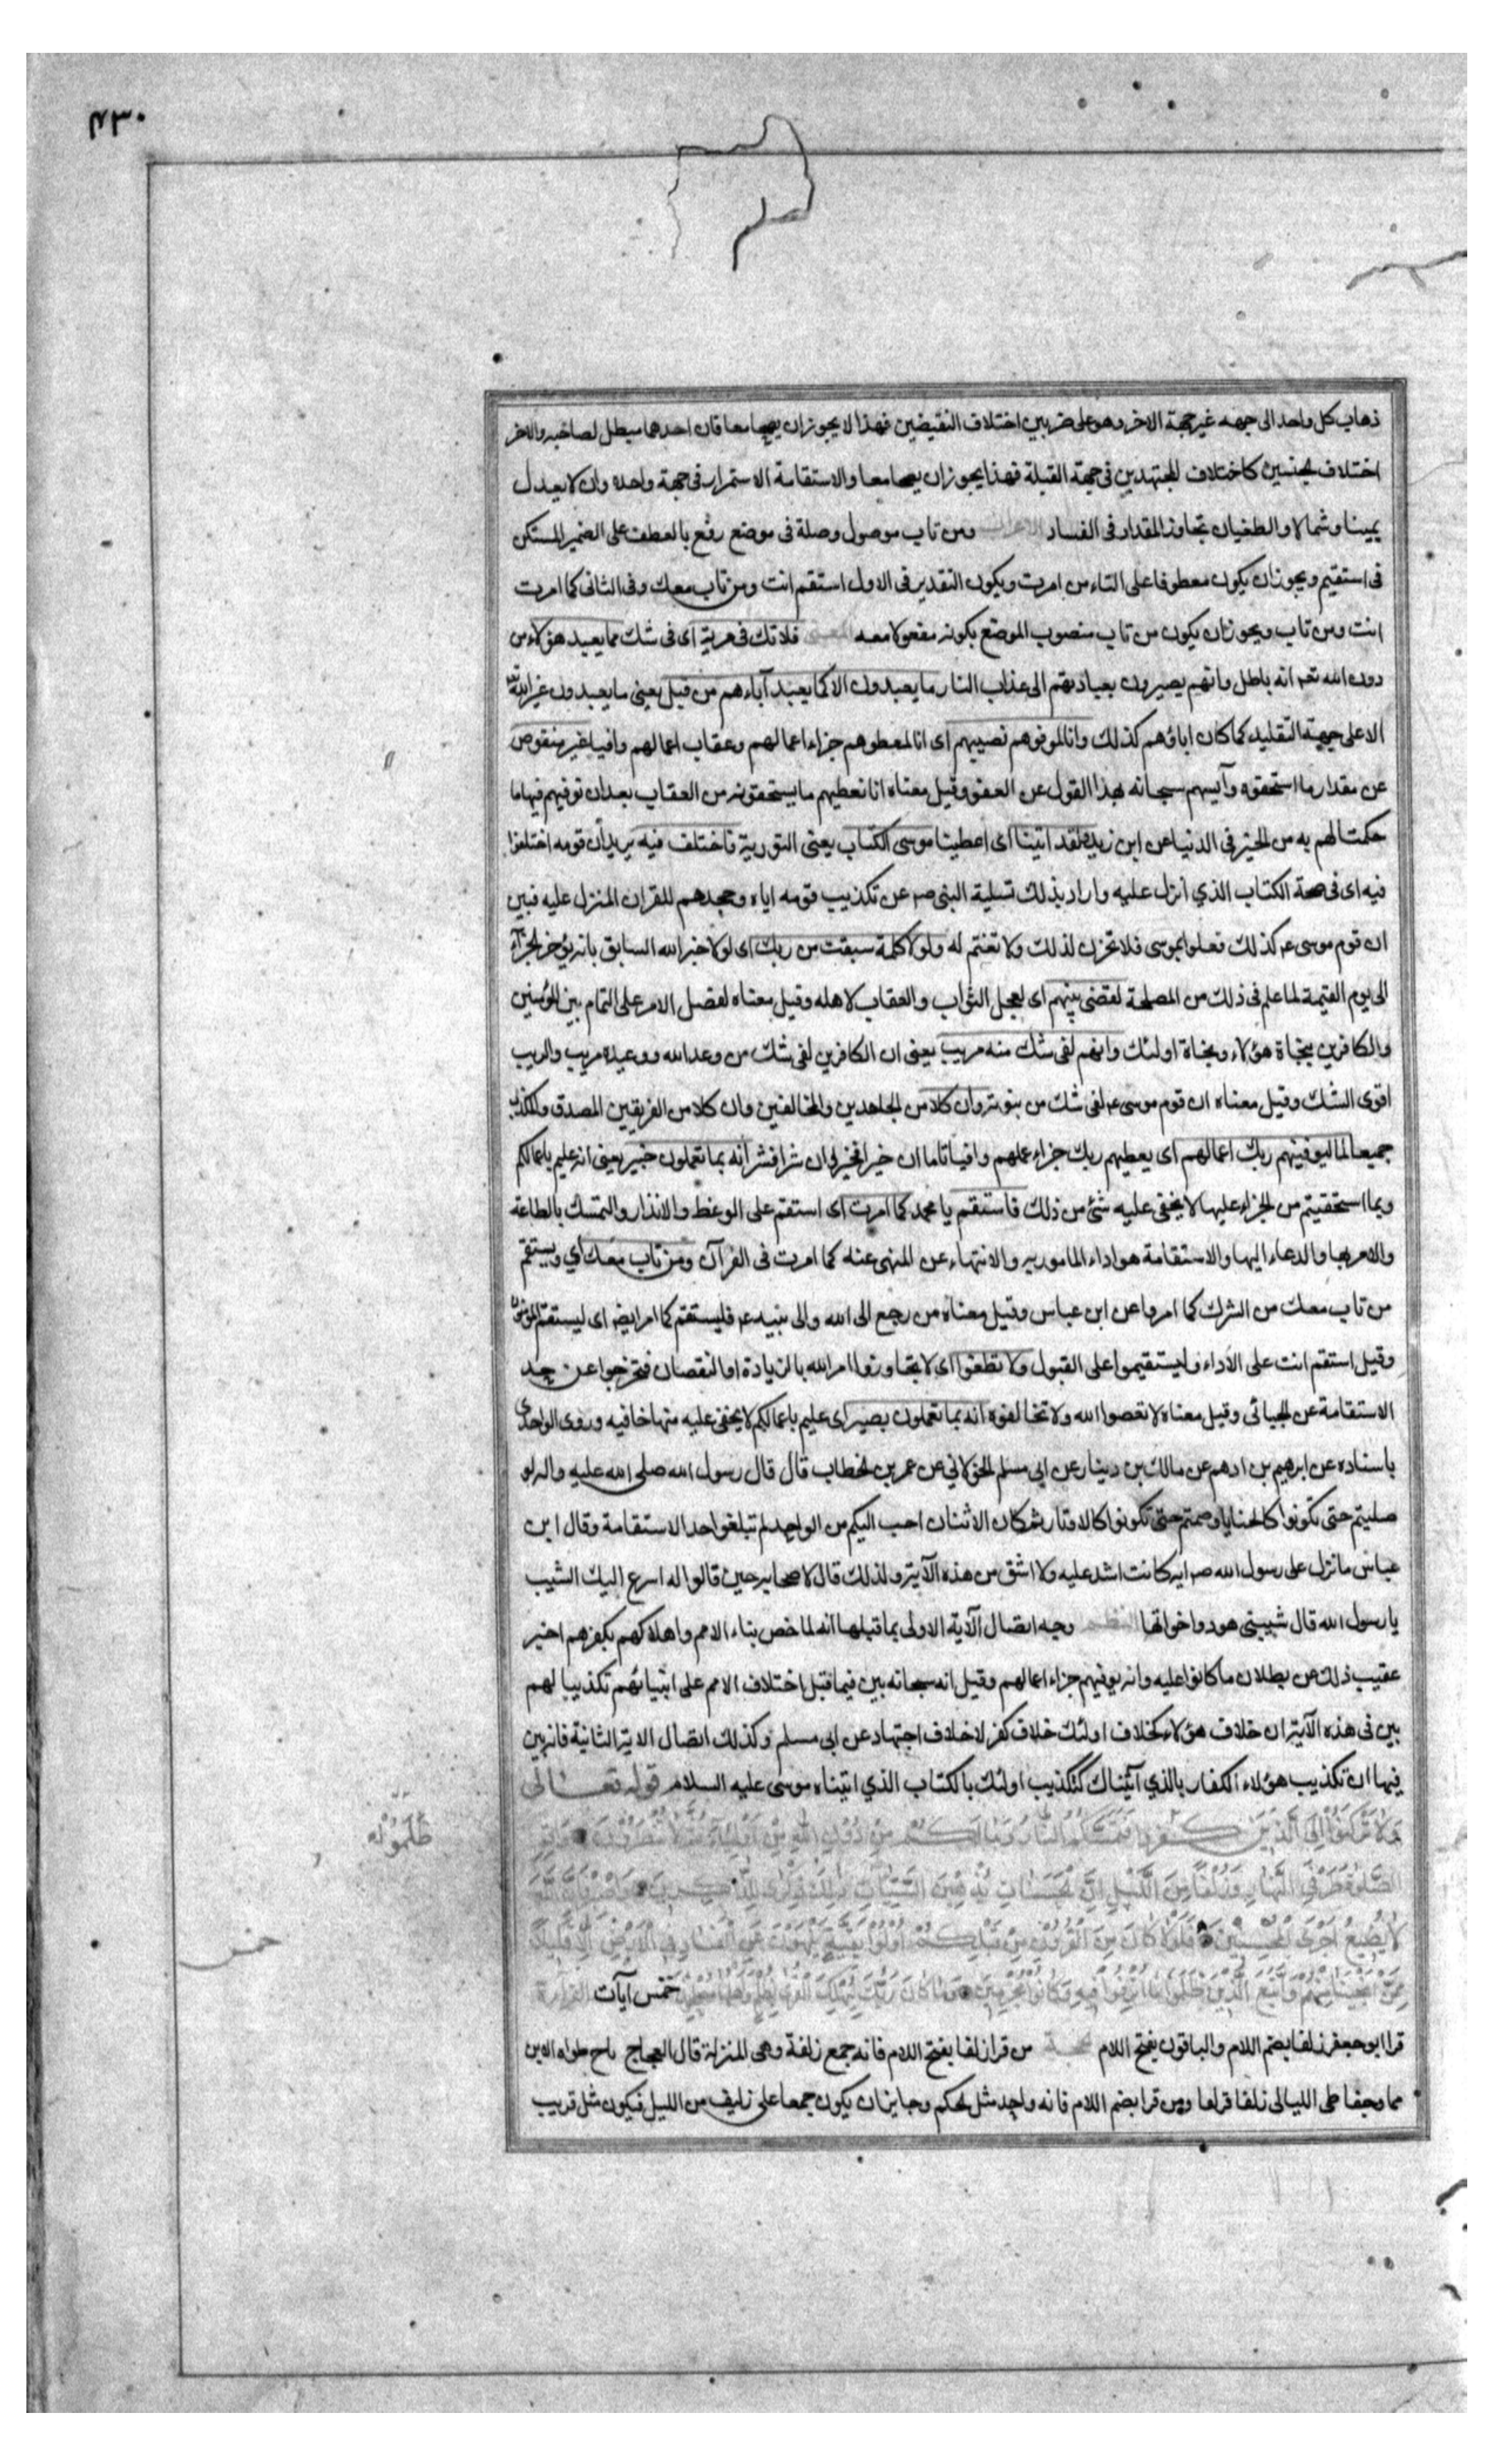 ٤٣٠
ذهاب كل واحد الى جهه غير جهة الاخر وهو على ضربين اختلاف النقيضين فهذا لا يجوز ان يصحا معا فان احدهما مبطل لصاحبه والاخر
اختلاف الجنسين كاختلاف المجتهدين فى جهة القبلة فهذا يجوز ان يصحا معا والاستقامة الاستمرار فى جهة واحده وان لا يعدل
يمينا وشمالا والطغيان تجاوز المقدار فى الفساد الاعراب ومن تاب موصول وصلة فى موضع رفع بالعطف على الضمير المستكن
فى استقيم ويجوز ان يكون معطوفا على التاء من امرت ويكون التقدير فى الاول استقم انت ومن تاب معك وفى الثانى كما امرت
انت ومن تاب ويجوز ان يكون من تاب منصوب الموضع بكونه مفعولا معه المعنى فلا تك فى مرية اى فى شك مما يعبد هؤلاء من
دون الله تعه انه باطل وانهم يصيرون بعبادتهم الى عذاب النار ما يعبدون الا كما يعبد آباءهم من قبل يعنى ما يعبدون غير الله
الا على جهة التقليد كما كان اباؤهم كذلك وانا لموفوهم نصيبهم اى انا لمعطوهم جزاء اعمالهم وعقاب اعمالهم وافيا غير منقوص
عن مقدار ما استحقوه وآيسهم سبحانه بهذا القول عن العفو وقيل معناه انا نعطيهم ما يستحقونه من العقاب بعد ان نوفيهم فيها ما
حكمت لهم به من الخير فى الدنيا عن ابن زيد ولقد اتينا اى اعطينا موسى الكتاب يعنى التورية فاختلف فيه يريد أن قومه اختلفوا
فيه اى فى صحة الكتاب الذي أنزل عليه واراد بذلك تسلية النبى صم عن تكذيب قومه اياه وجحدهم للقران المنزل عليه فبين
ان قوم موسى عم كذلك فعلوا بموسى فلا تحزن لذلك ولا تغتم له ولولا كلمة سبقت من ربك اى لولا خبر الله السابق بانه يؤخر الجزآء
الى يوم القيمة لما علم فى ذلك من المصلحة لقضى بينهم اى لعجل الثواب والعقاب لاهله وقيل معناه لفصل الامر على التمام بين المؤمنين
والكافرين بنجاة هؤلاء وهلاك اولئك وانهم لفى شك منه مريب يعنى ان الكافرين لفى شك من وعد الله ووعيده مريب والريب
اقوى الشك وقيل معناه ان قوم موسى عم لفى شك من نبوته وان كلا من الجاحدين والمخالفين وان كلا من الفريقين المصدق والمكذب
جميعا لما ليوفينهم ربك اعمالهم اى يعطيهم ربك جزاء عملهم وافيا تاما ان خيرا فخير وان شرا فشر انه بما تعملون خبير يعنى انه عليم باعمالكم
وبما استحقيتم من الجزاء عليها لا يخفى عليه شئ من ذلك فاستقم يا محمد كما امرت اى استقم على الوعظ والانذار والتمسك بالطاعة
والامر بها والدعاء اليها والاستقامة هو اداء المامور به والانتهاء عن المنهى عنه كما امرت فى القرآن ومن تاب معك اي ويستقم
من تاب معك من الشرك كما امروا عن ابن عباس وقيل معناه من رجع الى الله والى نبيه عم فليستقم كما امر ايضا اى ليستقم المؤمنون
وقيل استقم انت على الاداء وليستقيموا على القبول ولا تطغوا اى لا تجاوزوا امر الله بالزيادة او النقصان فتخرجوا عن حد
الاستقامة عن الجبائى وقيل معناه لا تعصوا الله ولا تخالفوه انه بما تعملون بصير اى عليم باعمالكم لا يخفى عليه منها خافيه وروى الواحدى
باسناده عن ابرهيم بن ادهم عن مالك بن دينار عن ابى مسلم الخولاني عن عمر بن الخطاب قال قال رسول الله صلى الله عليه واله لو
صليتم حتى تكونوا كالحنايا وصمتم حتى تكونوا كالاوتار ثم كان الاثنان احب اليكم من الواحد لم تبلغوا حد الاستقامة وقال ابن
عباس ما نزل على رسول الله صم ايه كانت اشد عليه ولا اشق من هذه الآية ولذلك قال لاصحابه حين قالوا له اسرع اليك الشيب
يا رسول الله قال شيبتنى هود واخواتها النظم وجه اتصال الآية الاولى بما قبلها انه لما خص بناء الامم واهلاكهم بكفرهم اخبر
عقيب ذلك عن بطلان ما كانوا عليه وانه يوفيهم جزاء اعمالهم وقيل انه سبحانه بين فيما قبل اختلاف الامم على انبيائهم تكذيبا لهم
بين فى هذه الآية ان خلاف هؤلاء كخلاف اولئك خلاف كفر لا خلاف اجتهاد عن ابى مسلم وكذلك اتصال الاية الثانية فانه بين
فيها ان تكذيب هؤلاء الكفار بالذي آتيناك كتكذيب اولئك بالكتاب الذي اتيناه موسى عليه السلام قوله تعالى
وَلَا تَرْكَنُوا إِلَى الَّذِينَ كفروا فَتَمَسَّكُمُ النَّارُ وَمَا لَكُمْ مِنْ دُونِ اللهِ مِنْ أَوْلِيَاءَ ثُمَّ لَا تُنْصَرُونَ وَأَقِمِ
ظَلَمُوْا له
الصَّلٰوةَ طَرَفَيِ النَّهَارِ وَزُلَفًا مِنَ الَّيْلِ إِنَّ الْحَسَنَاتِ يُذْهِبْنَ السَّيِّئَاتِ ذٰلِكَ ذِكْرٰى لِلذَّاكِرِينَ وَاصْبِرْ فَإِنَّ اللّٰهَ
لَا يُضِيعُ أَجْرَ الْمُحْسِنِينَ فَلَوْلَا كَانَ مِنَ الْقُرُونِ مِنْ قَبْلِكُمْ أُولُوا بَقِيَّةٍ يَنْهَوْنَ عَنِ الْفَسَادِ فِي الْأَرْضِ إِلَّا قَلِيلًا
خمس
مِمَّنْ أَنْجَيْنَا مِنْهُمْ وَاتَّبَعَ الَّذِينَ ظَلَمُوا مَا أُتْرِفُوا فِيهِ وَكَانُوا مُجْرِمِينَ وَمَا كَانَ رَبُّكَ لِيُهْلِكَ الْقُرٰى بِظُلْمٍ وَأَهْلُهَا مُصْلِحُونَ خمس آيات القراءة
قرا ابو جعفر زلفا بضم اللام والباقون بفتح اللام الحجة من قرا زلفا بفتح اللام فانه جمع زلفة وهى المنزلة قال العجاج ناج طواه الاين
مما وجفا طى الليالى زلفا فزلفا ومن قرا بضم اللام فانه واحد مثل الحكم وجايز ان يكون جمعا على زليف من الليل فيكون مثل قريب